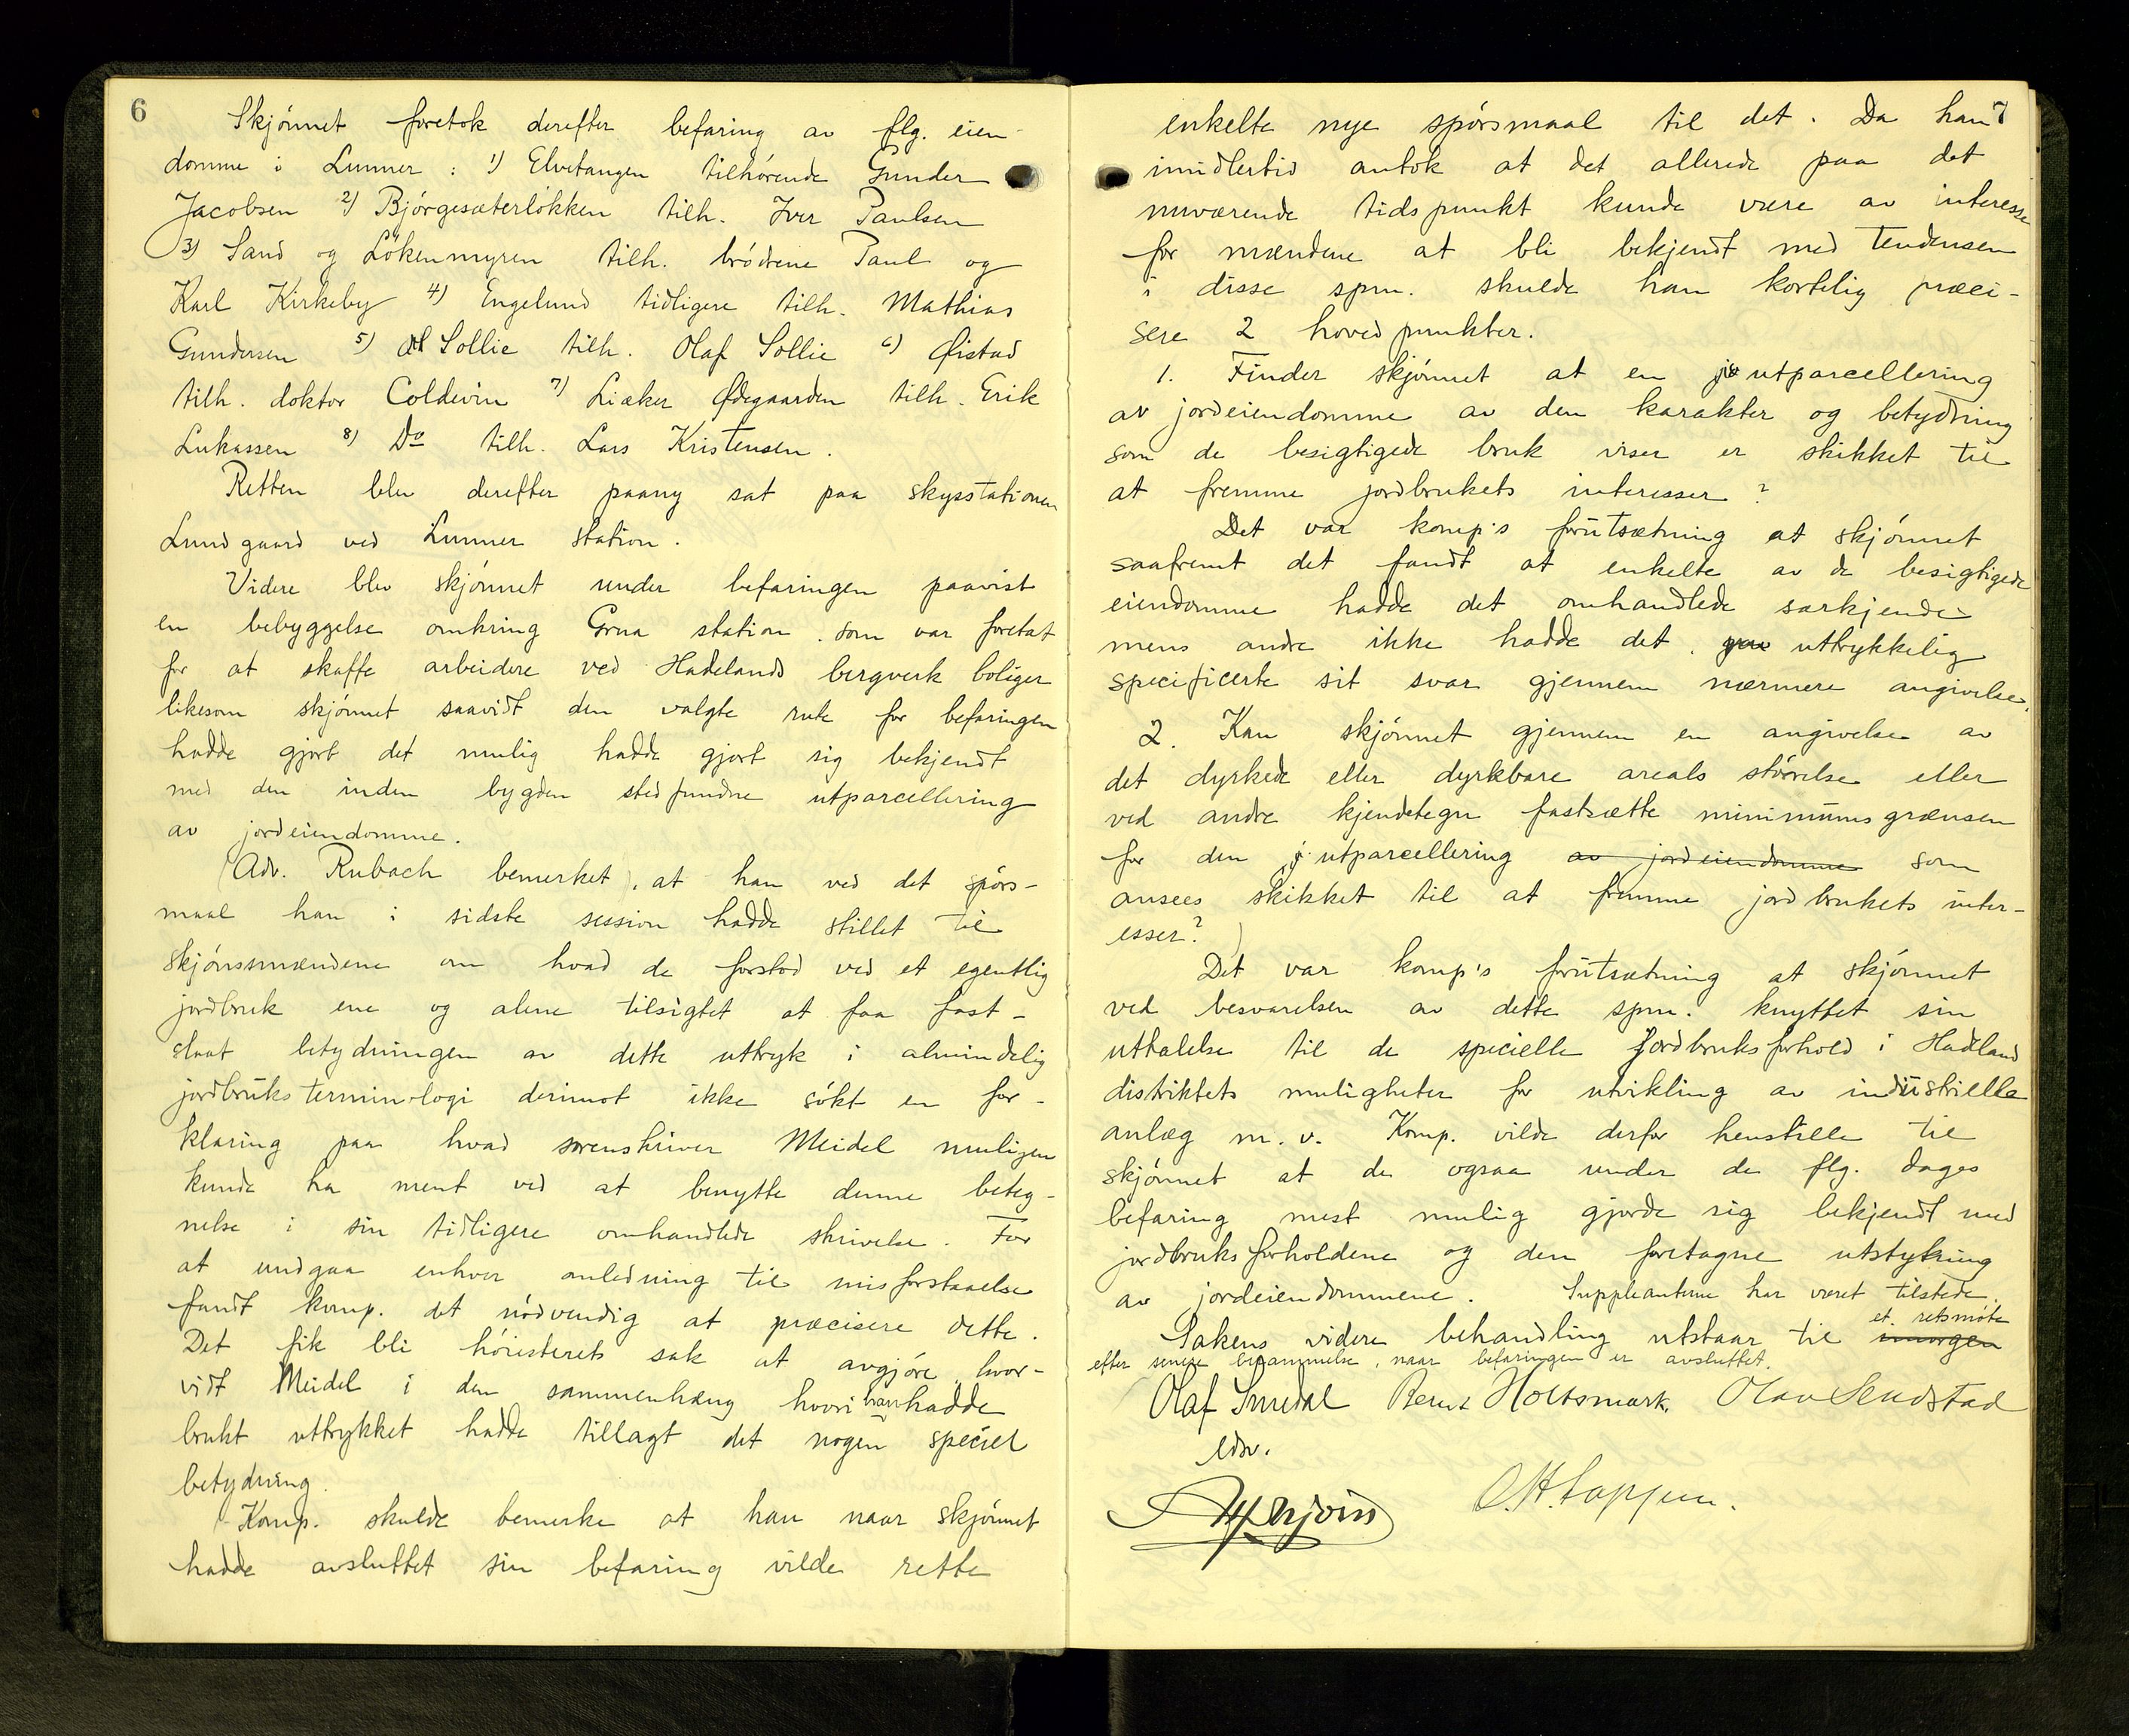 6
Skjønnet foretok derefter befaring av flg. eien-
domme i Lunner : 1) Elvetangen tilhørende Gunder
Jacobsen 2) Bjørgesæterløkken tilh. Iver Paulsen
3) Sand og Løkenmyren tilh. brødrene Paul og
Karl Kirkeby 4) Engelund tidligere tilh. Mathias
Gundersen 5) Sollie tilh. Olaf Sollie 6) Øistad
tilh. doktor Coldevin 7) Liæker Ødegaarden tilh. Erik
Lukassen 8) Do tilh. Lars Kristensen.
Retten blev derefter paany sat paa skysstationen
Lundgaard ved Lunner station.
Videre blev skjønnet under befaringen paavist
en bebyggelse omkring Grua station som var foretat
for at skaffe arbeidere ved Hadelands bergverk boliger
likesom skjønnet saavidt den valgte rute for befaringen
hadde gjort det mulig hadde gjort sig bekjendt
med den inden bygden stedfundne utparcellering
av jordeiendomme.
Adv. Rubach bemerket, at han ved det spørs-
maal han i sidste session hadde stillet til
skjønsmændene om hvad de forstod ved et egentlig
jordbruk ene og alene tilsigtet at faa fast-
slaat betydningen av dette uttryk i almindelig
jordbruksterminologi derimot ikke søkt en for-
klaring paa hvad sorenskriver Meidel muligen
kunde ha ment ved at benytte denne beteg-
nelse i sin tidligere omhandlede skrivelse. For
at undgaa enhver anledning til misforstaaelse
fandt komp. det nødvendig at præcisere dette.
Det fik bli høiesterets sak at avgjøre, hvor-
vidt Meidel i den sammenhæng hvori han hadde
brukt uttrykket hadde tillagt det nogen speciel
betydning.
Komp. skulde bemerke at han naar skjønnet
hadde avsluttet sin befaring vilde rette
7
enkelte nye spørsmaal til det. Da han
imidlertid antok at det allerede paa det
nuværende tidspunkt kunde være av interesse
for mændene at bli bekjendt med tendensen
i disse spm. skulde han kortelig præci-
sere 2 hovedpunkter.
1. Finder skjønnet at en utparcellering
av jordeiendomme av den karakter og betydning
som de besigtigede bruk viser er skikket til
at fremme jordbrukets interesser ?
Det var komp's forutsætning at skjønnet
saafremt det fandt at enkelte av de besigtigede
eiendomme hadde det omhandlede særkjende
mens andre ikke hadde det, uttrykkelig
specificerte sit svar gjennem nærmere angivelse.
2. Kan skjønnet gjennem en angivelse av
det dyrkede eller dyrkbare areals størrelse eller
ved andre kjendetegn fastsætte minimumsgrænsen
for den utparcellering av jordeiendomme som
ansees skikket til at fremme jordbrukets inter-
esser?
Det var komp's forutsætning at skjønnet
ved besvarelsen av dette spm. knyttet sin
uttalelse til de specielle jordbruksforhold i Hadland
distriktets muligheter for utvikling av industrielle
anlæg m. v. Komp. vilde derfor henstille til
skjønnet at de ogsaa under de flg. dages
befaring mest mulig gjorde sig bekjendt med
jordbruksforholdene og den foretagne utstykning
av jordeiendommene. Suppleanterne har været tilstede.
Sakens videre behandling utstaar til imorgen et retsmøte
efter senere berammelse, naar befaringen er avsluttet.
Olaf Smedal Bernt Holtsmark. Olav Sendstad
edsv.